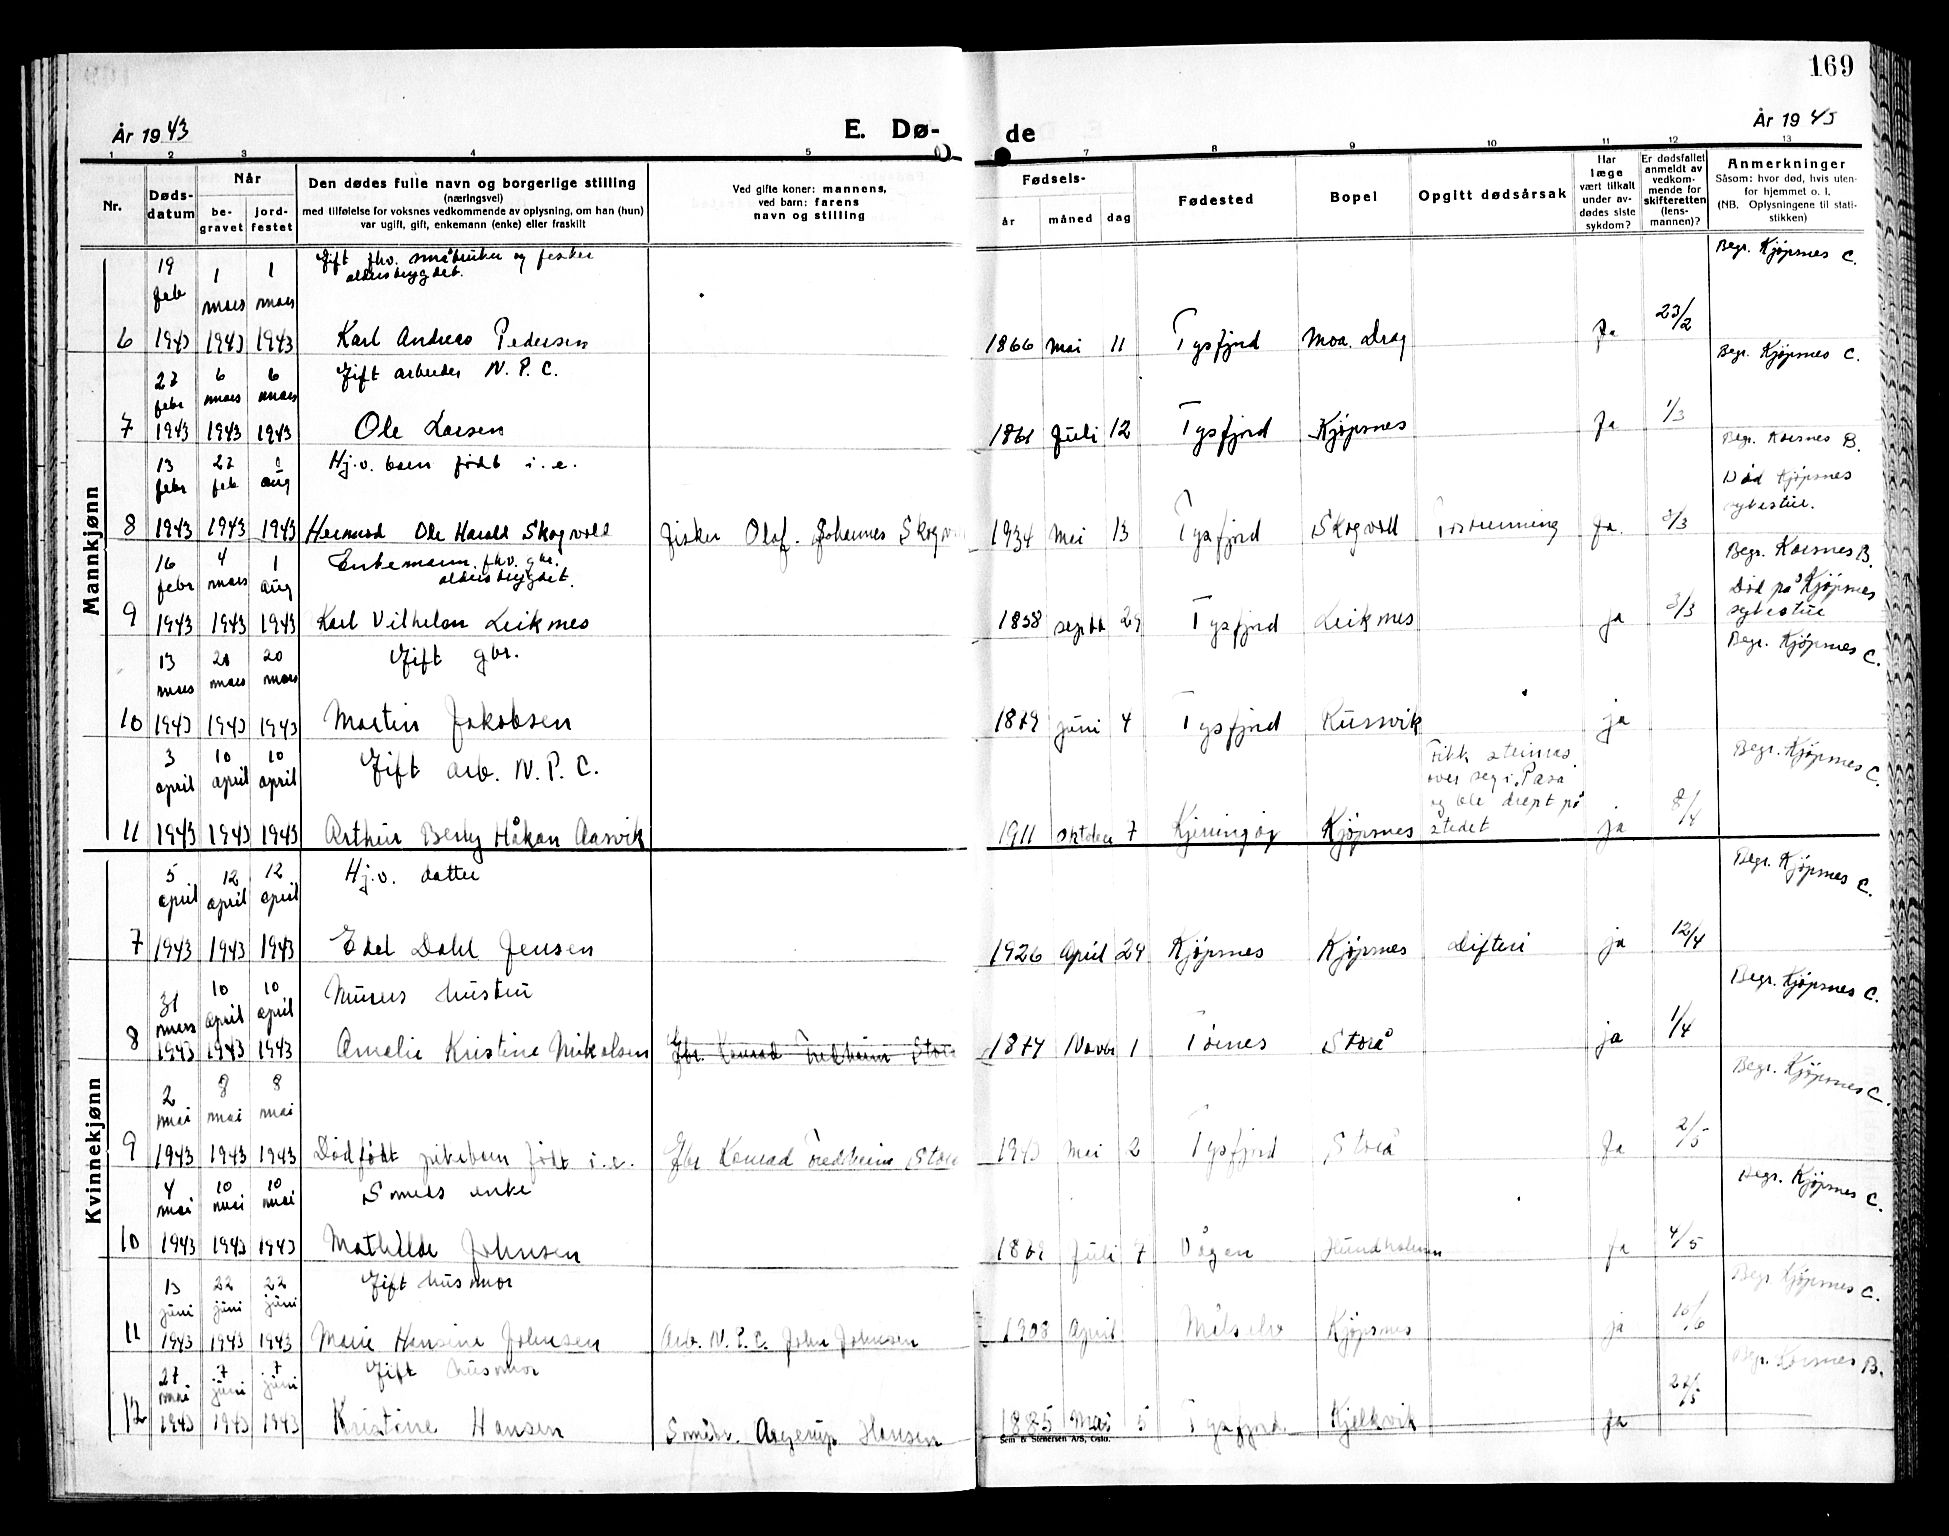 169
År 1943
E. Dø-
de
År 1943
1 2 3 4 5 7 8 9 10 11 12 13
Nr.
Døds-
datum
Når
be-
gravet
jord-
festet
Den dødes fulle navn og borgerlige stilling
(næringsvei)
med tilføielse for voksnes vedkommende av oplysning, om han (hun)
var ugift, gift, enkemann (enke) eller fraskilt
Ved gifte koner: mannens,
ved barn: farens
navn og stilling
Fødsels-
år
måned
dag
Fødested
Bopel
Opgitt dødsårsak
Har
læge
vært tilkalt
under av-
dødes siste
sykdom?
Er dødsfallet
anmeldt av
vedkom-
mende for
skifteretten
(lens-
mannen)?
Anmerkninger
Såsom: hvor død, hvis uten-
for hjemmet o. l.
(NB. Oplysningene til stati-
stikken)
Mannkjønn
19 1 1 Gift fhv. småbruker og fisker Begr. Kjøpsnes C.
feb mars mars alderstrygdet.
6 1943 1943 1943 Karl Andreas Pedersen 1866 Mai 11 Tysfjord Moa. Drag Ja 23/2
6 6 Gift arbeider N. P. C. Begr. Kjøpsnes C.
febr mars mars
7 1943 1943 1943 Ole Larsen Juli 12 Tysfjord Kjøpsnes Ja 1/3
13 22 Hj.v. barn født i. e. Begr. Korsnes B.
febr feb aug Død Kjøpsnes
sykestue.
8 1943 1943 1943 Ole Harald Skogvold Fisker Olof. Johannes 1934 Mai 13 Tysfjord Skogvoll Ja. 3/3
16 4 1 Enkemann. fhv. gbr. Begr. Korsnes B.
febr mars aug alderstrygdet. Død på Kjøpsnes
sykestue
9 1943 1943 1943 Karl Vilhelm Leiknes 1858 septb 29 Tysfjord Leiknes ja 3/3
13 20 20 Gift gbr. Begr. Kjøpsnes C.
mars mars mars
10 1943 1943 1943 Martin Jakobsen 1879 juni 4 Tysfjord Russvik ja
3 10 10 Gift arb. N. P. C. Fikk steinras Begr. Kjøpsnes C.
april april april over seg i
og ble drept på
11 1943 1943 1943 Arthur Håkon Aasvik 1911 oktober 7 Kjerringøy Kjøpsnes stedet ja 8/4
Kvinnekjønn
5 12 12 Hj.v. datter Begr. Kjøpsnes C.
april april april
7 1943 1943 1943 Edel Dahl Jensen 1926 April 24 Kjøpsnes Kjøpsnes Difteri ja 12/4
31 10 10 Murers hustru Begr. Kjøpsnes C.
mars april april
8 1943 1943 1943 Amalie Kristine Nikolsen Gbr. Konrad Fredheim Storå Novbr 1 Tørnes Storå ja 1/4
2 8 8 Begr. Kjøpsnes C.
mai mai mai
9 1943 1943 1943 Dødfødt pikebarn født i. e. Gbr Konrad Fredheim Storå 1943 Mai 2 Tysfjord Storå Ja 2/5
4 10 10 Smeds enke Begr. Kjøpsnes C.
mai mai mai
10 1943 1943 1943 Mathilde Johnsen Juli 7 Vågan Hundholmen Ja 4/5
13 22 22 Gift husmor Begr Kjøpsnes C.
juni juni juni
11 1943 1943 1943 Marie Hansine Johnsen Arb. N. P. C. John Johnsen 1908 April Målselv Kjøpsnes ja
27 7 7 Gift husmor Begr. Korsnes B.
mai juni juni
12 1943 1943 1943 Kristine Hansen Småbr. Hansen 1885 Mai 5 Tysfjord Kjelkvik Ja
Sem & Stenersen A/S, Oslo.